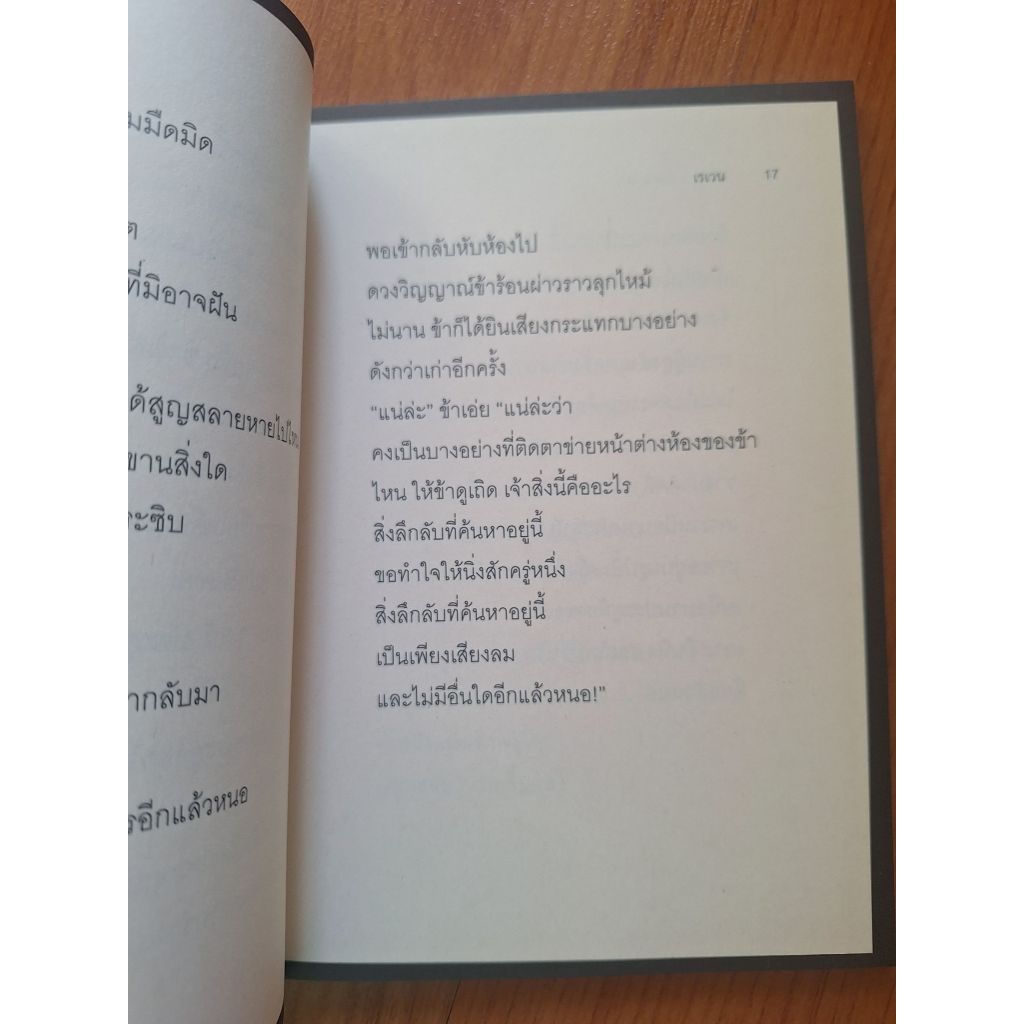 มมืดมิด
ที่มิอาจฝัน
ได้สูญสลายหายไป
ขานสิ่งใด
ระซิบ
ากลับมา
รอีกแล้วหนอ
เรเวน 17
พอเข้ากลับหับห้องไป
ดวงวิญญาณ์ข้าร้อนผ่าวราวลุกไหม้
ไม่นาน ข้าก็ได้ยินเสียงกระแทกบางอย่าง
ดังกว่าเก่าอีกครั้ง
“แน่ล่ะ” ข้าเอ่ย “แน่ล่ะว่า
คงเป็นบางอย่างที่ติดตาข่ายหน้าต่างห้องของข้า
ไหน ให้ข้าดูเถิด เจ้าสิ่งนี้คืออะไร
สิ่งลึกลับที่ค้นหาอยู่นี้
ขอทำใจให้นิ่งสักครู่หนึ่ง
สิ่งลึกลับที่ค้นหาอยู่นี้
เป็นเพียงเสียงลม
และไม่มีอื่นใดอีกแล้วหนอ!”